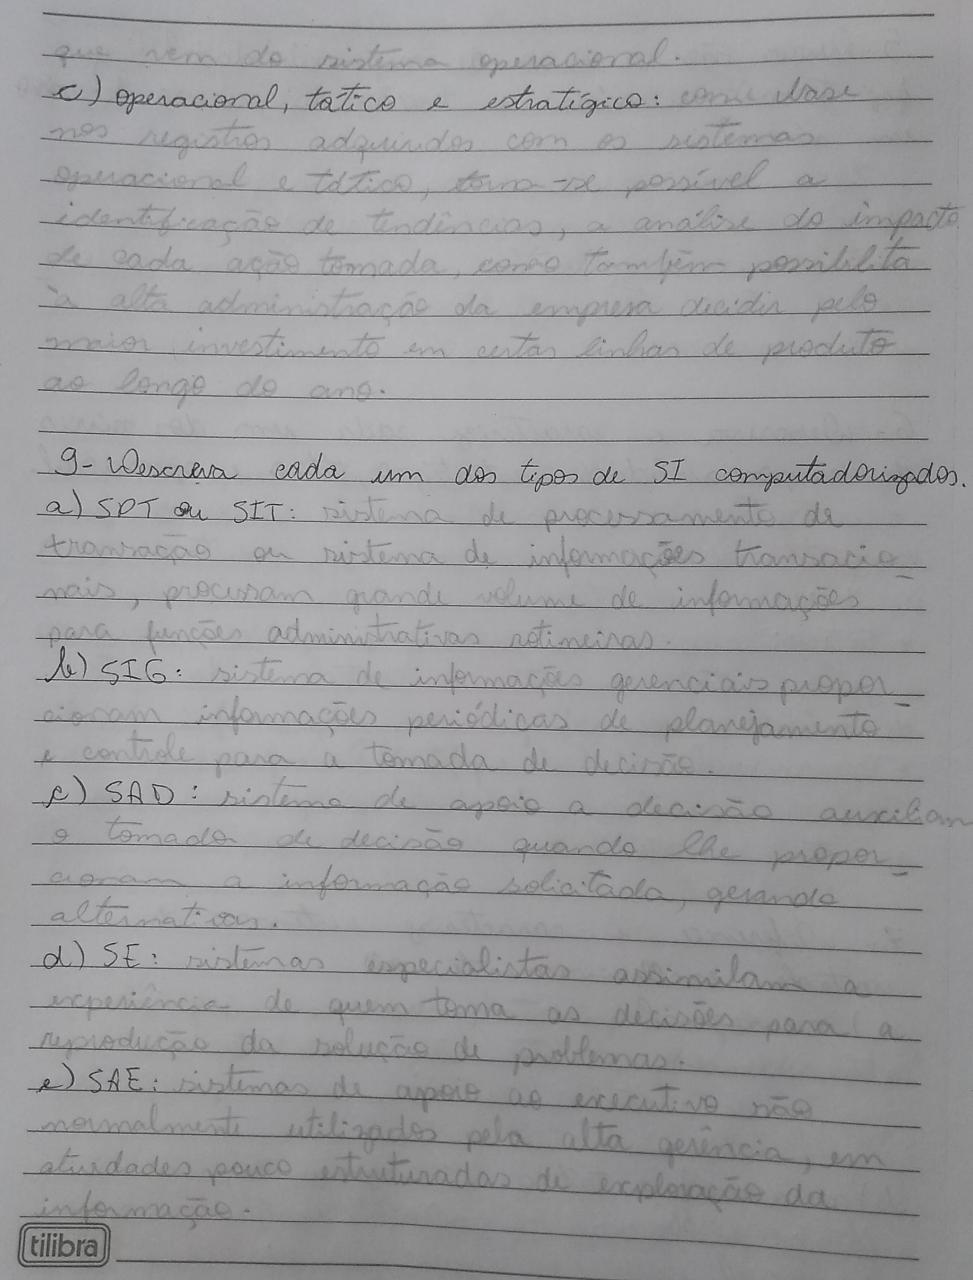 que vem do sistema operacional.
c) operacional, tático e estratégico: com base
nos registros adquiridos com os sistemas
operacional e tático, torna-se possível a
identificação de tendências, a análise do impacto
de cada ação tomada, como também possibilita
à alta administração da empresa decidir pelo
maior investimento em certas linhas de produto
ao longo do ano.
9- Descreva cada um dos tipos de SI computadorizados.
a) SPT ou SIT: sistema de processamento de
transação ou sistema de informações transacio-
nais, processam grande volume de informações
para funções administrativas rotineiras.
b) SIG: sistema de informações gerenciais propor-
cionam informações periódicas de planejamento
e controle para a tomada de decisão.
c) SAD: sistema de apoio a decisão auxiliam
o tomador de decisão quando lhe propor-
cionam a informação solicitada, gerando
alternativas.
d) SE: sistemas especialistas assimilam a
experiência de quem toma as decisões para a
reprodução da solução de problemas.
e) SAE: sistemas de apoio ao executivo são
normalmente utilizados pela alta gerência, em
atividades pouco estruturadas de exploração da
informação.
tilibra